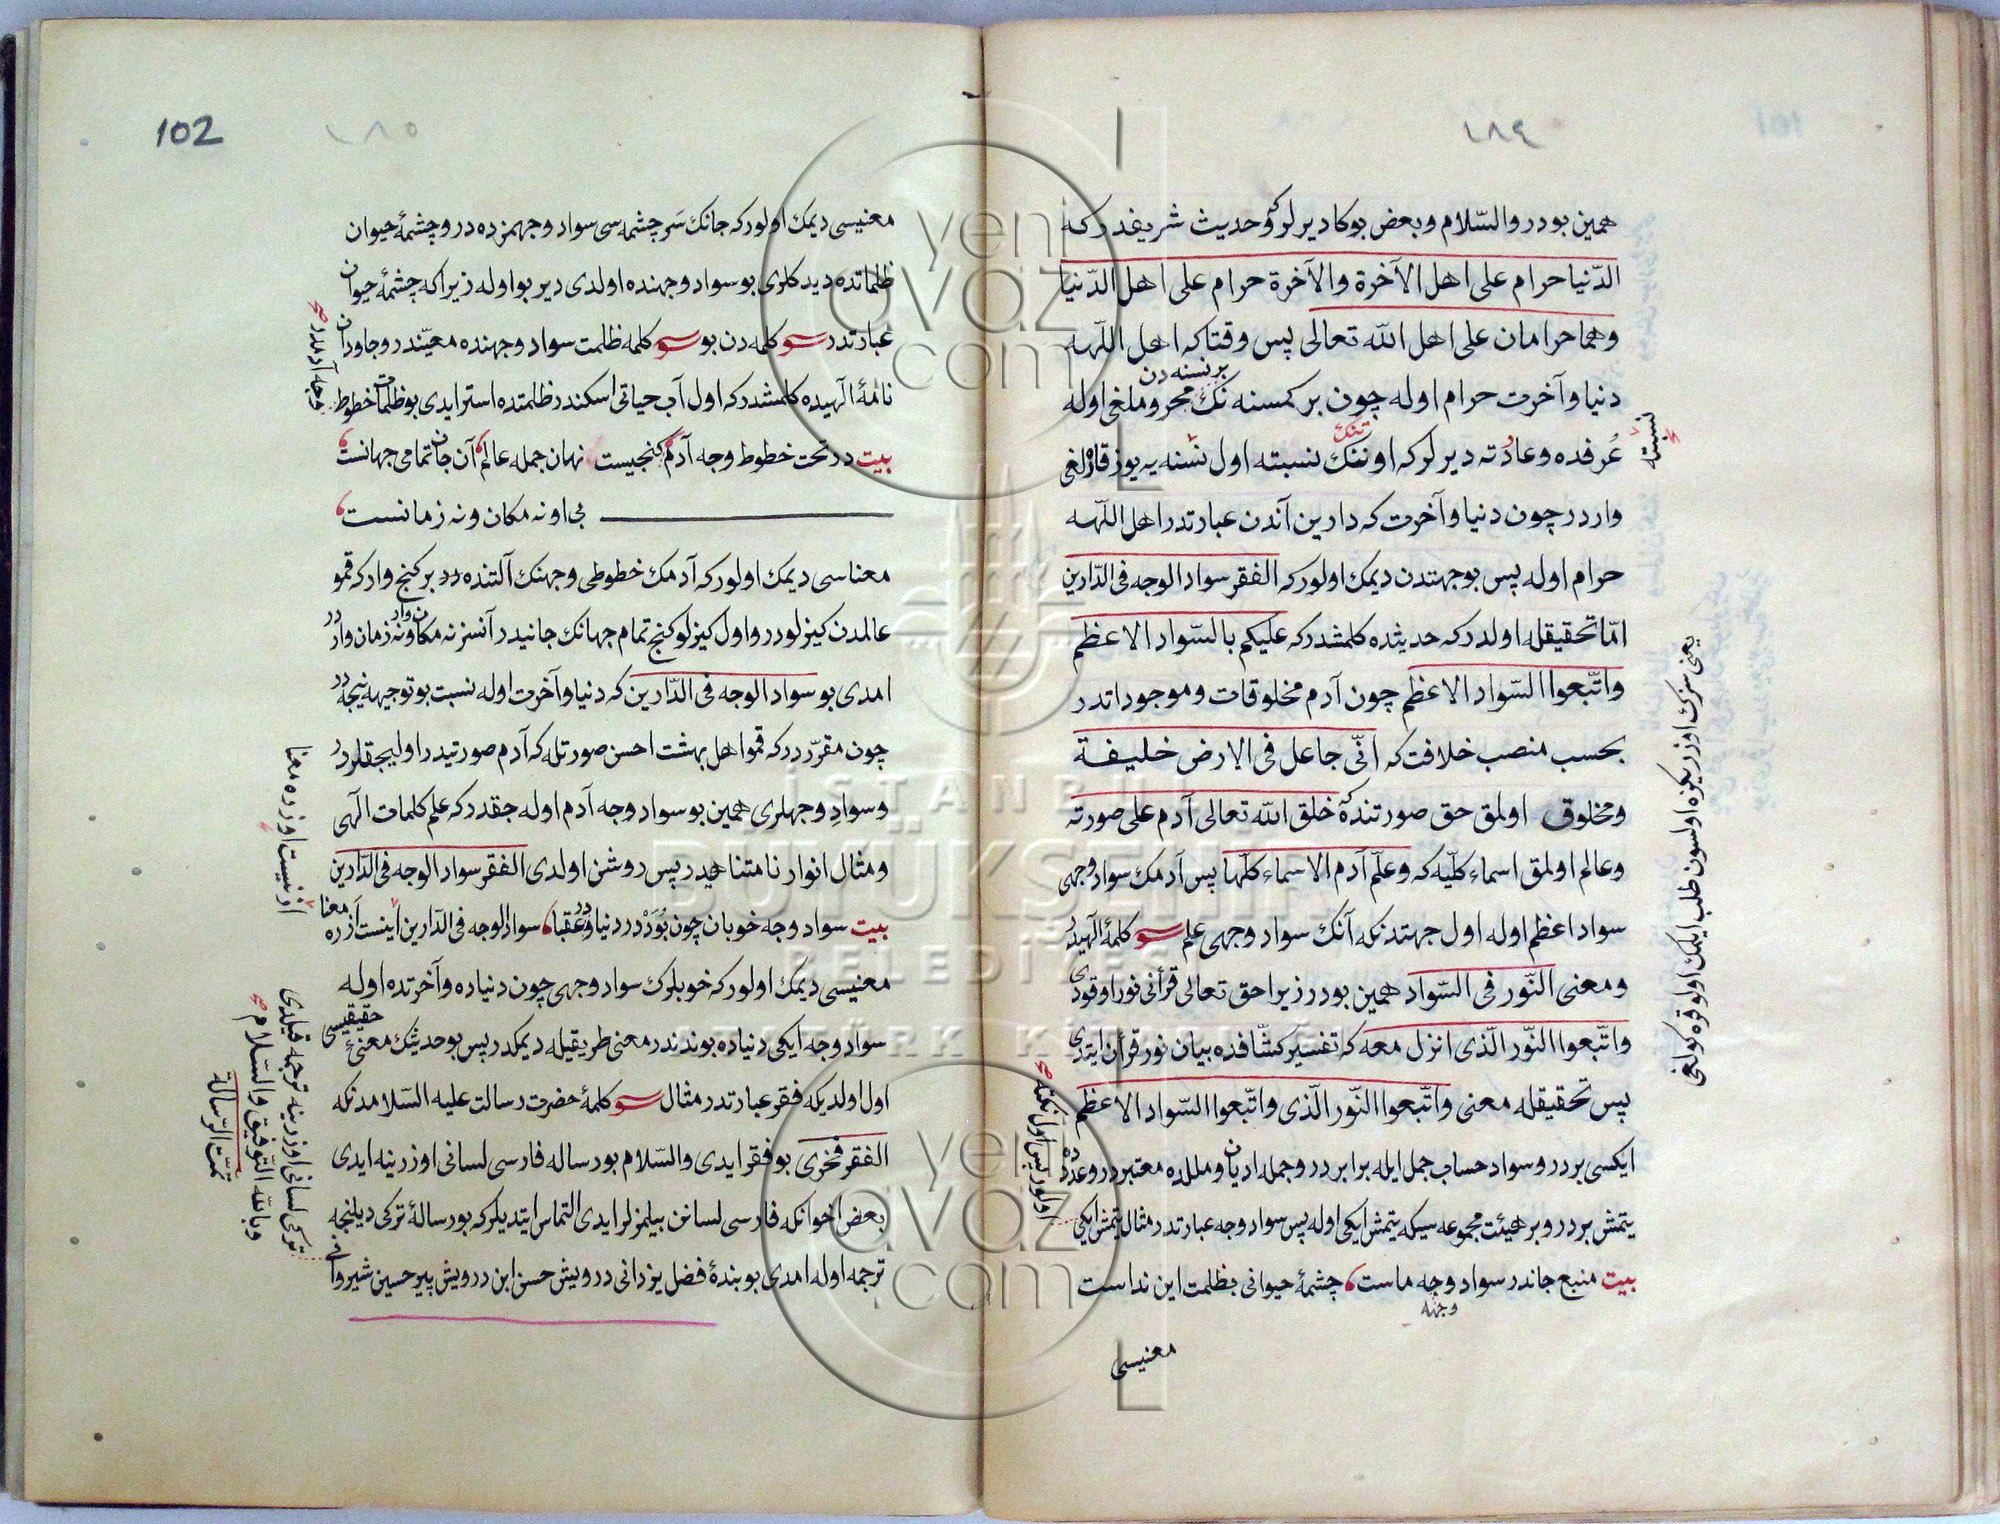 ١٨٤
همین بودر والسّلام و بعض بوکا دیرلرکه حدیث شریفدرکه
الدّنیا حرام علی اهل الآخرة والآخرة حرام علی اهل الدّنیا
وهما حرامان علی اهل الله تعالی پس وقتاکه اهل اللّهه
دنیا و آخرت حرام اوله چون بر کمسنه نك بر نسنه دن محروملغی اوله
عرفده و عادته دیرلرکه اوننك نسبته اول نسنه یه یوز قارلغی
نسبته
واردر چون دنیا و آخرت که دارین آندن عبارتدر اهل اللّهه
حرام اوله پس بو جهتدن دیمك اولورکه الفقر سواد الوجه فی الدّارین
امّا تحقیقله اولدرکه حدیثده کلمشدرکه علیکم بالسّواد الاعظم
واتّبعوا السّواد الاعظم چون آدم مخلوقات و موجوداتدر
بحسب منصب خلافت که انّی جاعل فی الارض خلیفة
و مخلوق اولمق حق صورتنده که خلق الله تعالی آدم علی صورته
و عالم اولمق اسماء کلّیه که وعلّم آدم الاسماء کلّها پس آدمك سواد وجهی
سواد اعظم اوله اول جهتدنکه آنك سواد وجهی علم سی و کلمهٔ الٓهیدر
و معنی النّور فی السّواد همین بودر زیرا حق تعالی قرآنی نور اوقودی
واتّبعوا النّور الّذی انزل معه که تفسیر کشّافده بیان نور قرآن ایتدی
پس تحقیقله معنی واتّبعوا النّور الّذی واتّبعوا السّواد الاعظم
ایکسی بردر و سواد حساب جمل ایله برابردر و جمله ادیان و مللده معتبردر و عددده
یتمش بردر و بر هیئت مجموعه سیکه یتمش ایکی اوله پس سواد وجه عبارتدر مثال یتمش ایکی
بیت منبع جاندر سواد وجه ماست چشمهٔ حیوانی بظلمت این نداست
وجه
معنیسی
یعنی سزك اوزریکزه اولسون طلب ایلمك اولو قره کولغی
اولور پس اول نکته
102
١٨٥
معنیسی دیمك اولورکه جانك سرچشمه سی سواد وجهمزده در و چشمهٔ حیوان
ظلماتده دیدکلری بو سواد وجهنده اولدی دیر بو اوله زیراکه چشمهٔ حیوان
عبارتدر سی و کلمه دن بو سی و کلمه ظلمت سواد وجهنده معیّندر و جاودان
نامهٔ الٓهیده کلمشدرکه اول آب حیاتی اسکندر ظلمتده استر ایدی بو ظلمات خطوط
وجه آدمدر
بیت در تحت خطوط وجه آدم کنجیست نهان جمله عالم آن جان تمامی جهانست
بی او نه مکان و نه زمانست
معناسی دیمك اولورکه آدمك خطوطی وجهنك آلتنده در بر کنج وارکه قمو
عالمدن کیزلودر و اول کیزلو کنج تمام جهانك جانیدر آنسز نه مکان واردر و نه زمان واردر
امدی بو سواد الوجه فی الدّارین که دنیا و آخرت اوله نسبت بو توجیهه نیجه در
چون مقرّردرکه قمو اهل بهشت احسن صورتله که آدم صورتیدر اولیجقلردر
و سواد وجهلری همین بو سواد وجه آدم اوله جقدرکه علم کلمات الٓهی
و مثال انوار نامتناهیدر پس روشن اولدی الفقر سواد الوجه فی الدّارین
بیت سواد وجه خوبان چون بود در دنیا و در عقبا سواد الوجه فی الدارین اینست از ره معنا
از نیست اوزرده معنا
معنیسی دیمك اولورکه خوبلرك سواد وجهی چون دنیاده و آخرتده اوله
سواد وجه ایکی دنیاده بوندندر معنی طریقیله دیمکدر پس بو حدیثك معنیٔ حقیقیسی
اول اولدیکه فقر عبارتدر مثال سی و کلمهٔ حضرت رسالت علیه السّلامدنکه
الفقر فخری بو فقر ایدی والسّلام بو رساله فارسی لسانی اوزرینه ایدی
بعض اخوانکه فارسی لسانن بیلمزلر ایدی التماس ایتدیلرکه بو رسالهٔ ترکی دیلنجه
ترجمه اوله امدی بو بندهٔ فضل یزدانی درویش حسن ابن درویش پیر حسین شیروانی
ترکی لسانی اوزرینه ترجمه قیلدی
وبالله التّوفیق والسّلام
تمّت الرّسالة
yeni
avaz
.com
İSTANBUL
BÜYÜKŞEHİR
BELEDİYESİ
ATATÜRK K
yeni
avaz
.com